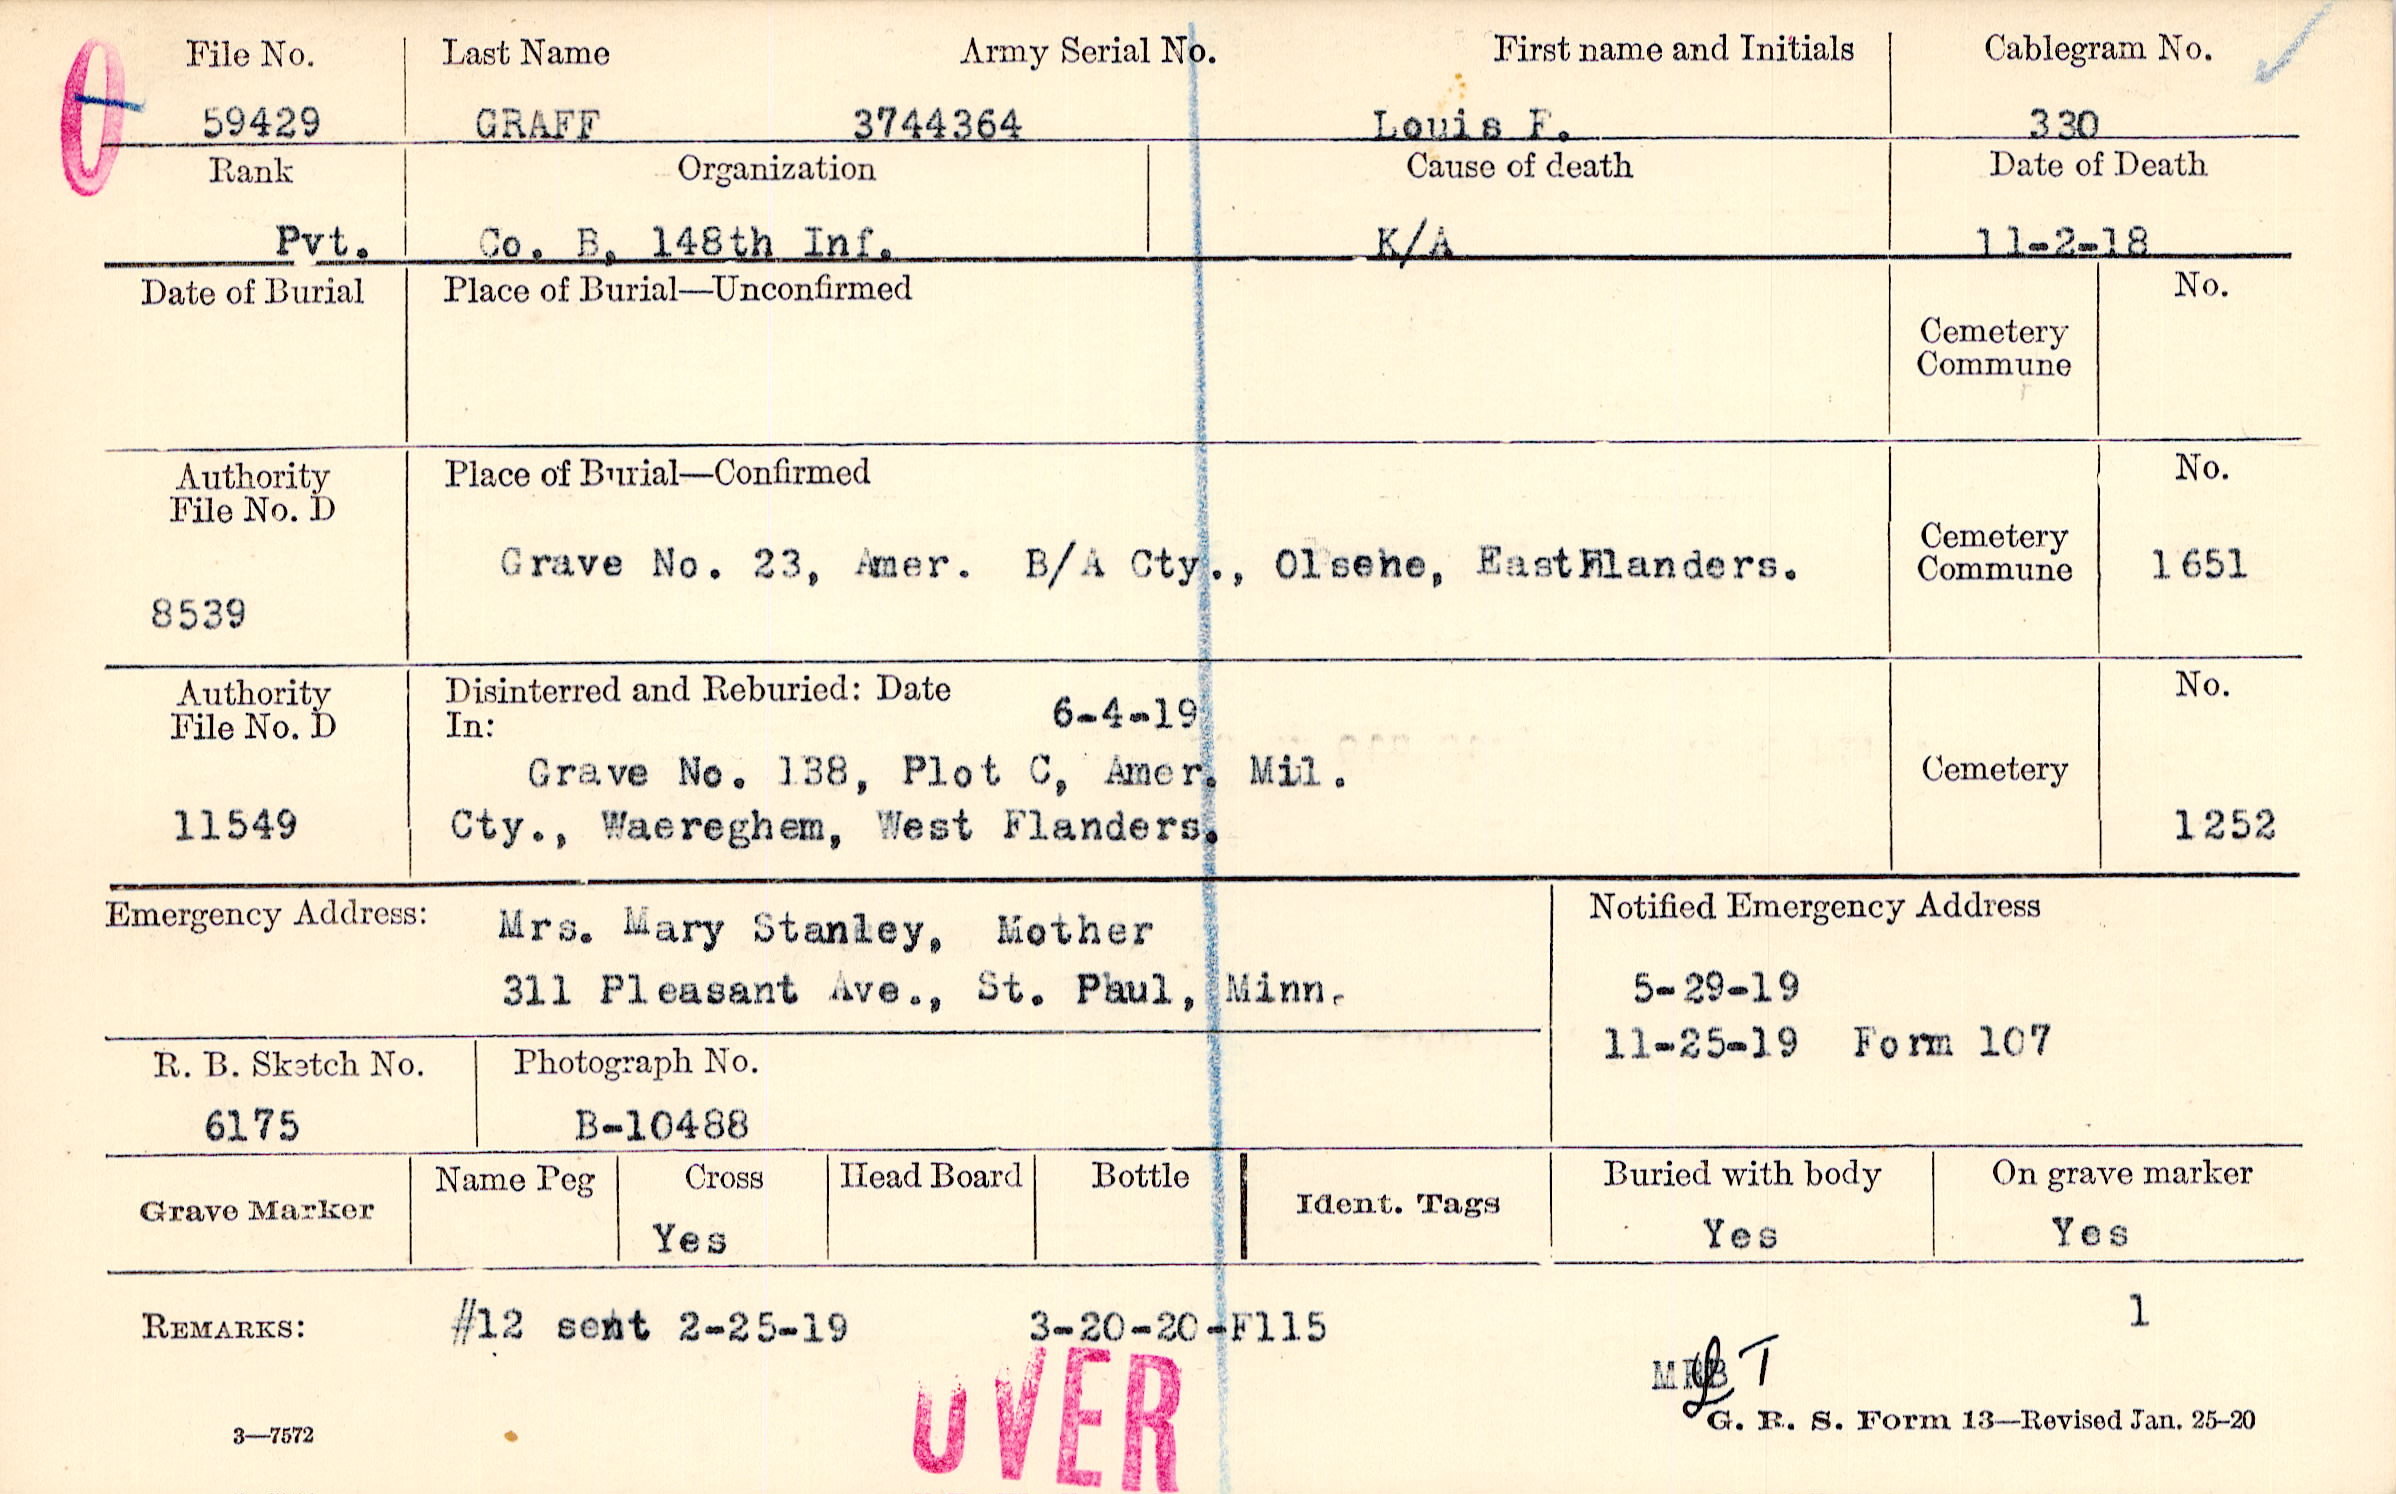 File No. Last Name Army Serial No. First name and Initials Cablegram No.
59429 GRAFF 3744364 Louis F. 330
Rank Organization Cause of death Date of Death
Pvt. Co. B, 148th Inf. K/A 11-2-18
Date of Burial Place of Burial—Unconfirmed No.
Cemetery
Commune
Authority Place of Burial—Confirmed No.
File No. D
Cemetery
Grave No. 23, Amer. B/A Cty., Olsene, EastFlanders. Commune 1651
8539
Authority Disinterred and Reburied: Date 6-4-19 No.
File No. D In:
Grave No. 138, Plot C, Amer. Mil. Cemetery
11549 Cty., Waereghem, West Flanders. 1252
Emergency Address: Mrs. Mary Stanley, Mother Notified Emergency Address
311 Pleasant Ave., St. Paul, Minn. 5-29-19
11-25-19 Form 107
R. B. Sketch No. Photograph No.
6175 B-10488
Grave Marker Name Peg Cross Head Board Bottle Ident. Tags Buried with body On grave marker
Yes Yes Yes
1
REMARKS: #12 sent 2-25-19 3-20-20-F115
OVER
3—7572 G. R. S. Form 13—Revised Jan. 25-20